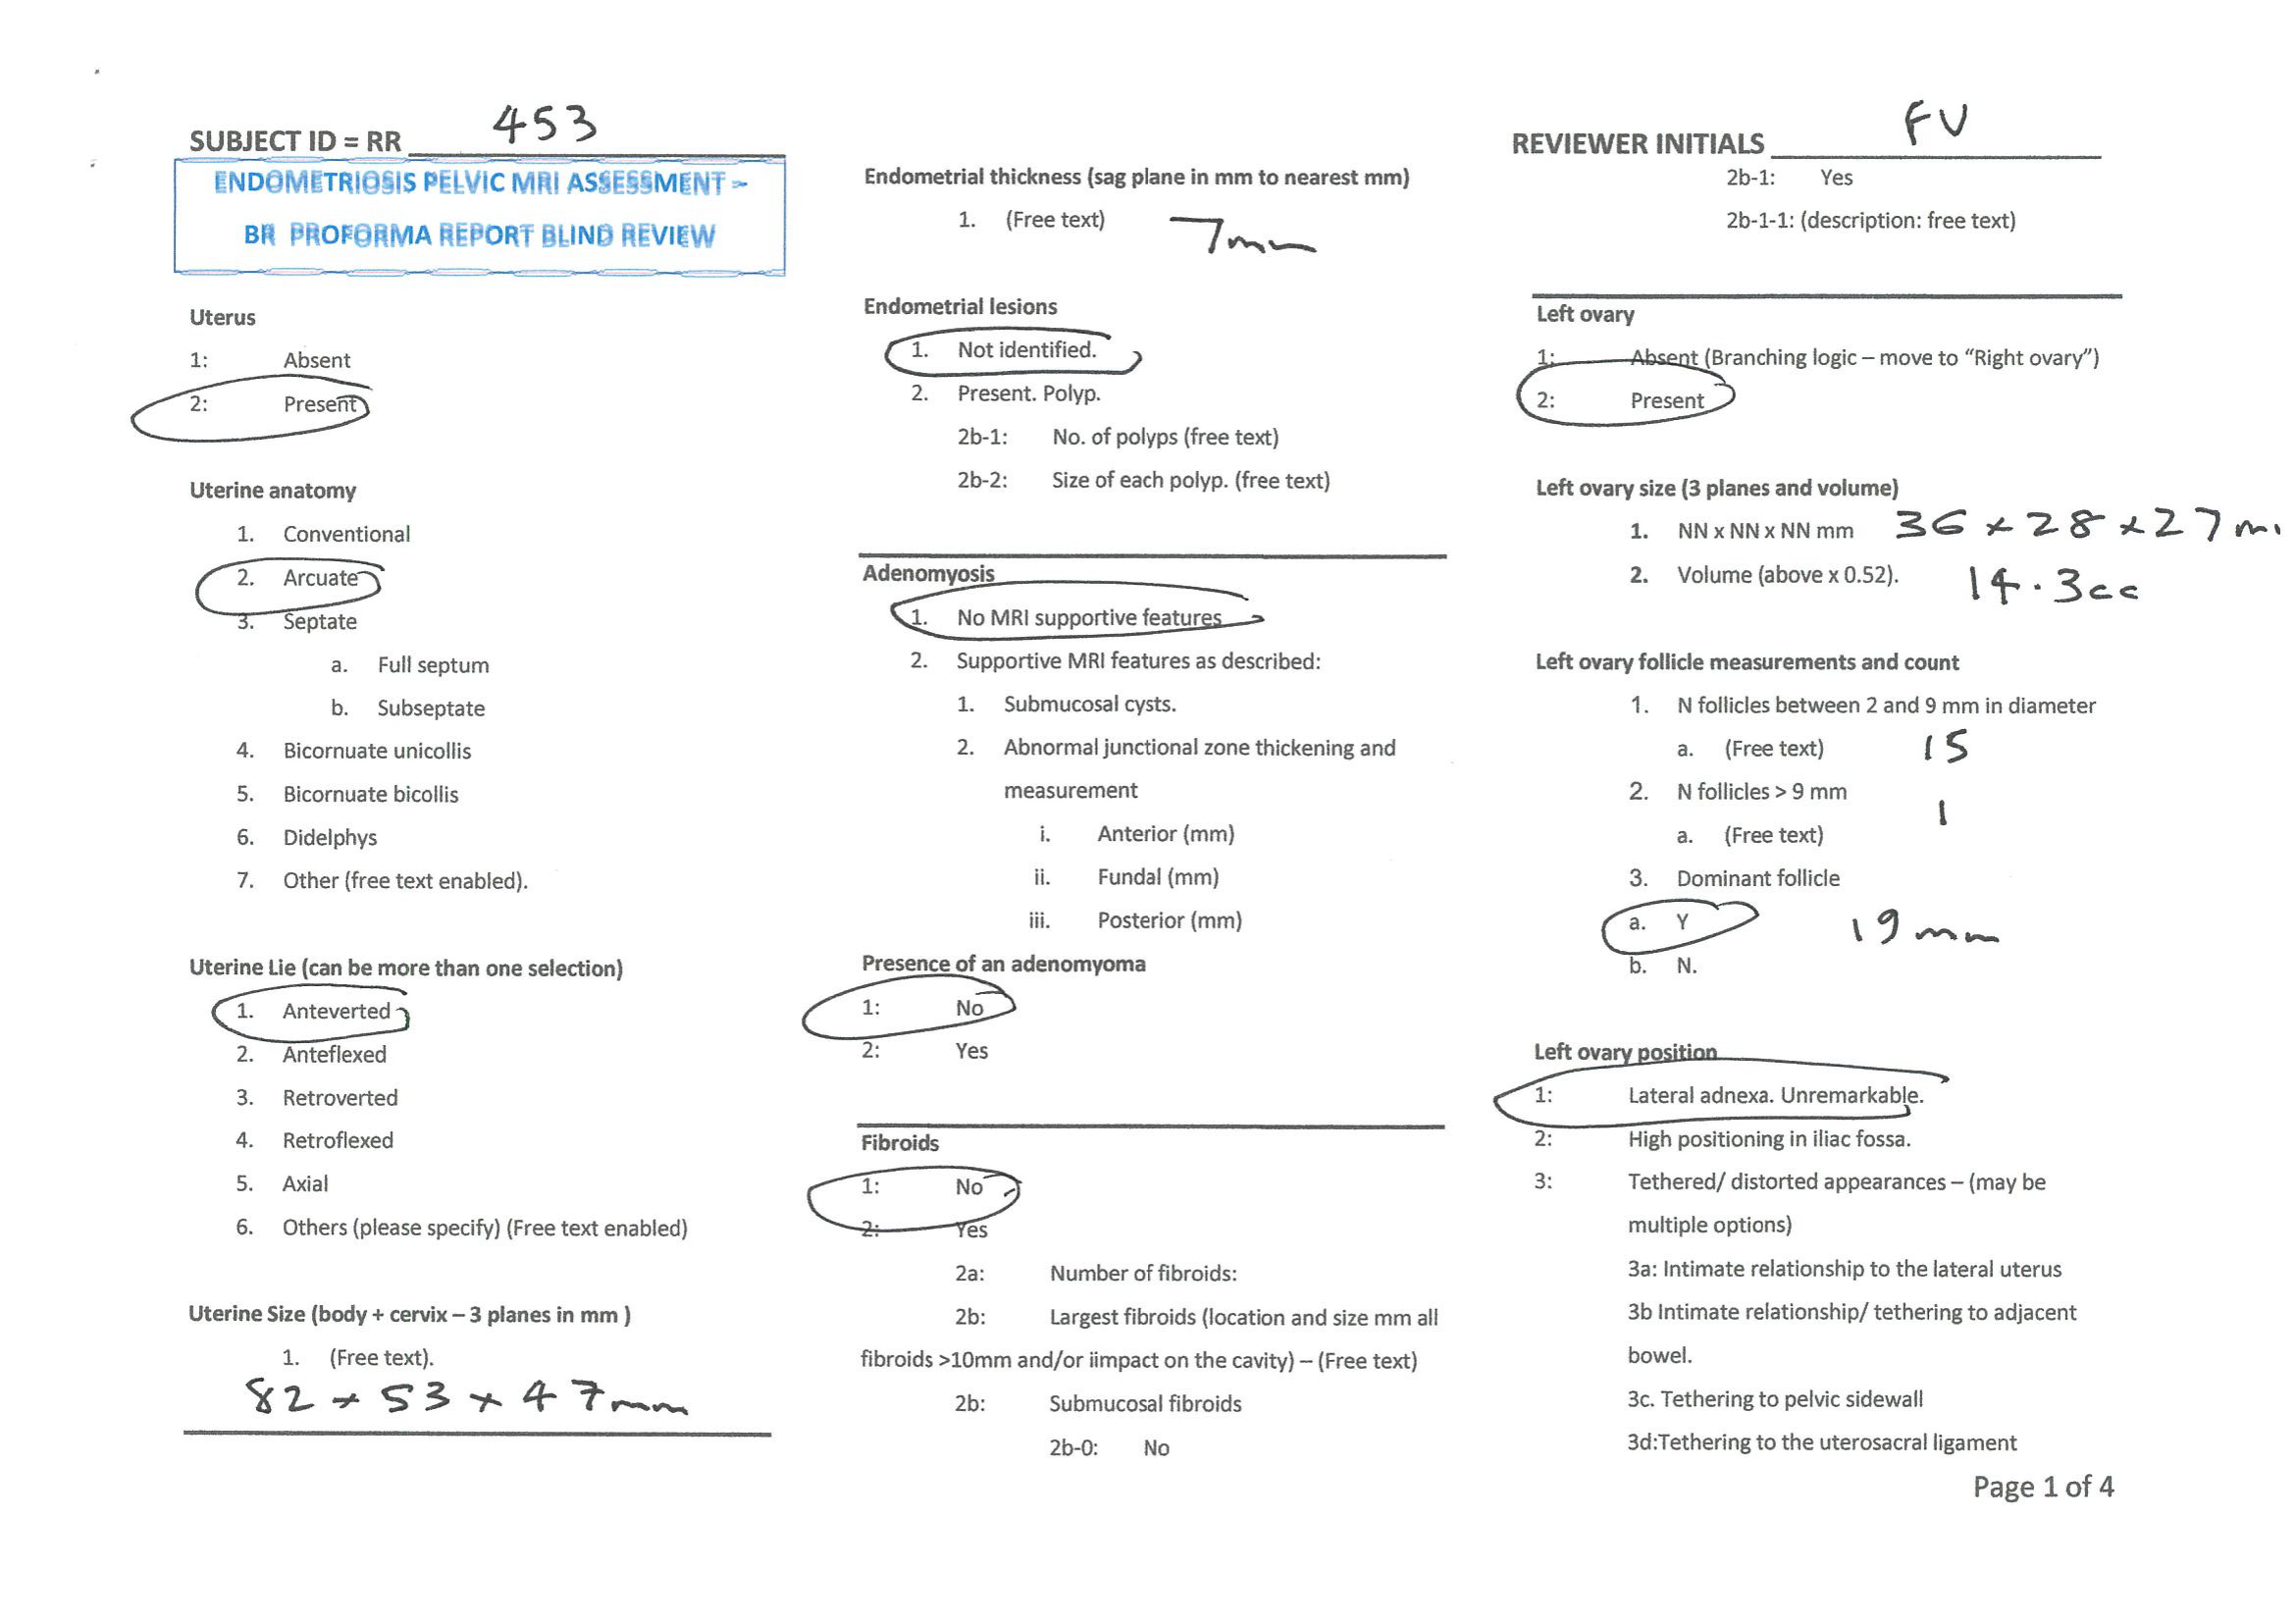 SUBJECT ID = RR 453
ENDOMETRIOSIS PELVIC MRI ASSESSMENT –
BR PROFORMA REPORT BLIND REVIEW
Uterus
1: Absent
2: Present
Uterine anatomy
1. Conventional
2. Arcuate
3. Septate
a. Full septum
b. Subseptate
4. Bicornuate unicollis
5. Bicornuate bicollis
6. Didelphys
7. Other (free text enabled).
Uterine Lie (can be more than one selection)
1. Anteverted
2. Anteflexed
3. Retroverted
4. Retroflexed
5. Axial
6. Others (please specify) (Free text enabled)
Uterine Size (body + cervix – 3 planes in mm )
1. (Free text).
82 x 53 x 47mm
Endometrial thickness (sag plane in mm to nearest mm)
1. (Free text) 7mm
Endometrial lesions
1. Not identified.
2. Present. Polyp.
2b-1: No. of polyps (free text)
2b-2: Size of each polyp. (free text)
Adenomyosis
1. No MRI supportive features
2. Supportive MRI features as described:
1. Submucosal cysts.
2. Abnormal junctional zone thickening and
measurement
i. Anterior (mm)
ii. Fundal (mm)
iii. Posterior (mm)
Presence of an adenomyoma
1: No
2: Yes
Fibroids
1: No
2: Yes
2a: Number of fibroids:
2b: Largest fibroids (location and size mm all
fibroids >10mm and/or iimpact on the cavity) – (Free text)
2b: Submucosal fibroids
2b-0: No
REVIEWER INITIALS FV
2b-1: Yes
2b-1-1: (description: free text)
Left ovary
1: Absent (Branching logic – move to “Right ovary”)
2: Present
Left ovary size (3 planes and volume)
1. NN x NN x NN mm 36 x 28 x 27 m
2. Volume (above x 0.52). 14.3cc
Left ovary follicle measurements and count
1. N follicles between 2 and 9 mm in diameter
a. (Free text) 15
2. N follicles > 9 mm
1
a. (Free text)
3. Dominant follicle
a. Y 19mm
b. N.
Left ovary position
1: Lateral adnexa. Unremarkable.
2: High positioning in iliac fossa.
3: Tethered/ distorted appearances – (may be
multiple options)
3a: Intimate relationship to the lateral uterus
3b Intimate relationship/ tethering to adjacent
bowel.
3c. Tethering to pelvic sidewall
3d:Tethering to the uterosacral ligament
Page 1 of 4